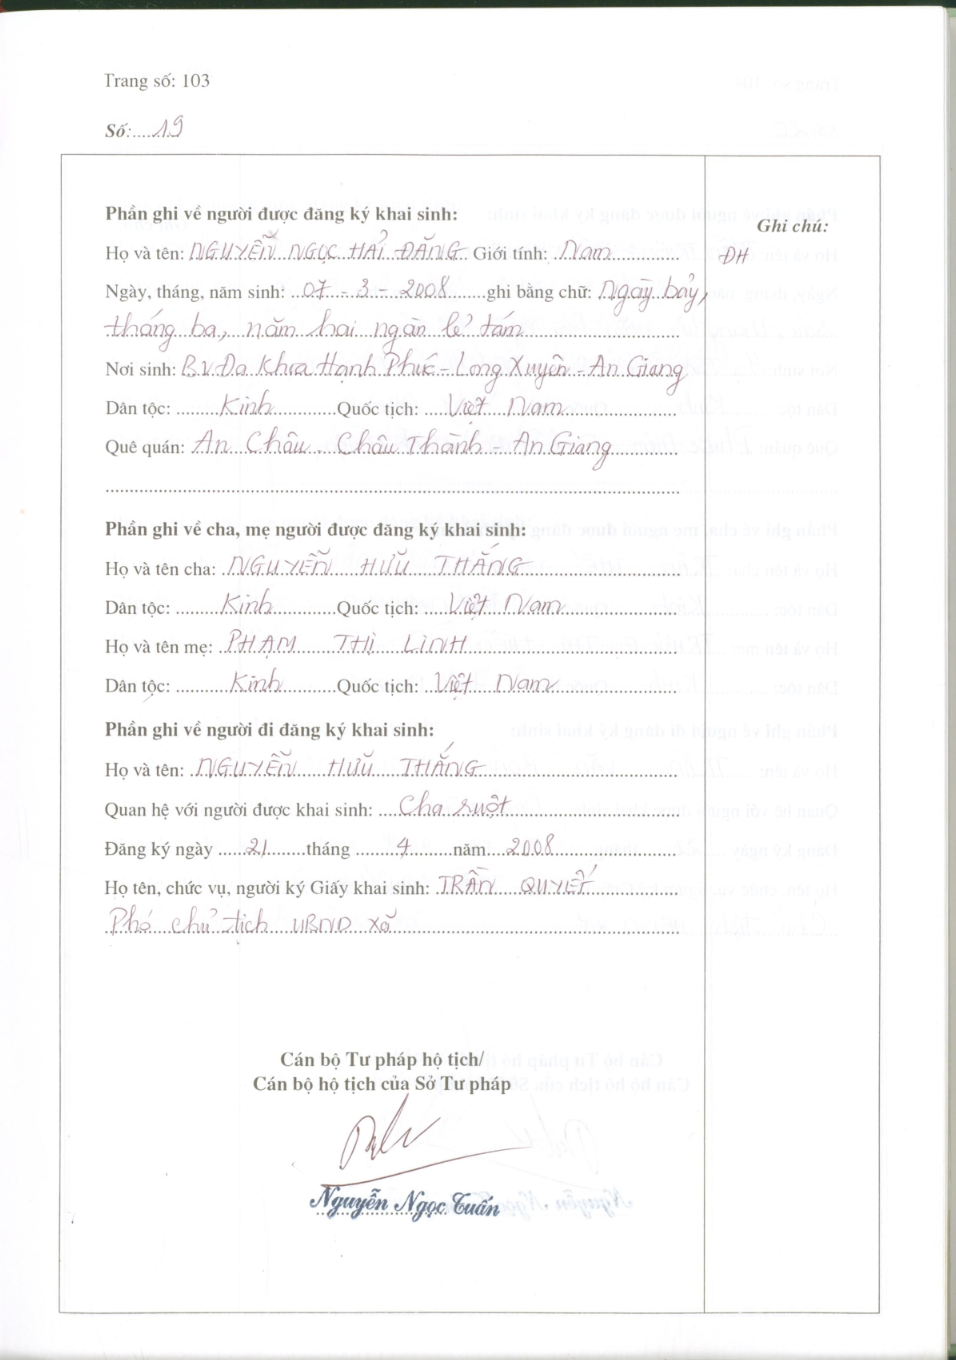 Trang số: 103
Số: 19
Ghi chú:
ĐH
Phần ghi về người được đăng ký khai sinh:
Họ và tên: NGUYỄN NGỌC HẢI ĐĂNG Giới tính: Nam
Ngày, tháng, năm sinh: 07 - 3 - 2008 ghi bằng chữ: Ngày bảy,
tháng ba, năm hai ngàn lẻ tám
Nơi sinh: B.V Đa Khoa Hạnh Phúc - Long Xuyên - An Giang
Dân tộc: Kinh Quốc tịch: Việt Nam
Quê quán: An Châu, Châu Thành - An Giang
Phần ghi về cha, mẹ người được đăng ký khai sinh:
Họ và tên cha: NGUYỄN HỮU THẮNG
Dân tộc: Kinh Quốc tịch: Việt Nam
Họ và tên mẹ: PHẠM THỊ LINH
Dân tộc: Kinh Quốc tịch: Việt Nam
Phần ghi về người đi đăng ký khai sinh:
Họ và tên: NGUYỄN HỮU THẮNG
Quan hệ với người được khai sinh: Cha ruột
Đăng ký ngày 21 tháng 4 năm 2008
Họ tên, chức vụ, người ký Giấy khai sinh: TRẦN QUYẾT
Phó chủ tịch UBND xã
Cán bộ Tư pháp hộ tịch/
Cán bộ hộ tịch của Sở Tư pháp
Nguyễn Ngọc Tuấn